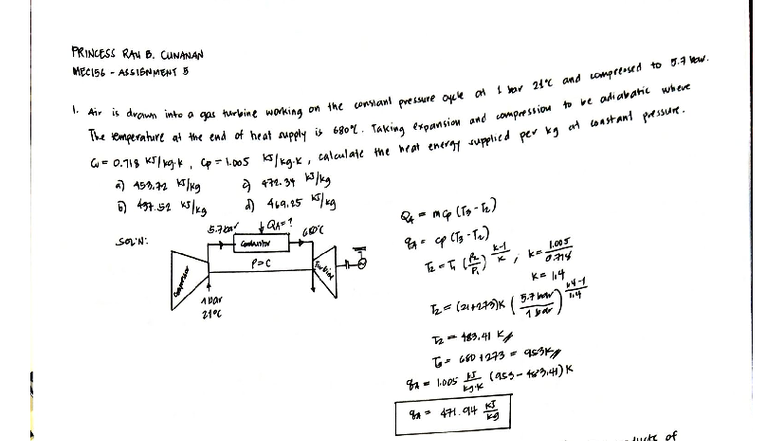 PRINCESS RAH B. CUNANAN
MEC156 - ASSIGNMENT 5
1. Air is drawn into a gas turbine working on the constant pressure cycle at 1 bar 21°C and compressed to 5.7 bar.
The temperature at the end of heat supply is 680°C. Taking expansion and compression to be adiabatic where
Cv = 0.718 KJ/kg·k, Cp = 1.005 KJ/kg·K, calculate the heat energy supplied per kg at constant pressure.
a) 453.72 KJ/kg c) 472.34 KJ/kg
b) 437.52 KJ/kg d) 469.25 KJ/kg
SOL'N:
5.7 bar QA = ? 680°C
Combustor
P=C
Compressor
Turbine
1 bar
21°C
QA = mcp (T3 - T2)
qA = cp (T3 - T2)
T2 = T1 (P2/P1) k-1/k , k = 1.005/0.718
k = 1.4
T2 = (21+273)K (5.7 bar/1 bar) 1.4-1/1.4
T2 = 483.41 K
T3 = 680 + 273 = 953K
qA = 1.005 KJ/kg·K (953 - 483.41) K
qA = 471.94 KJ/kg
products of